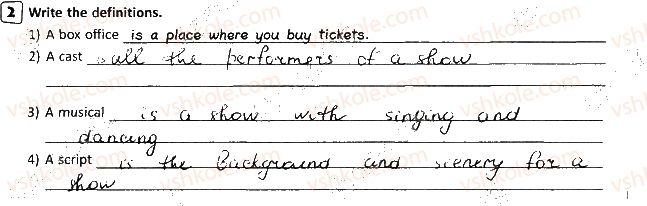 2 Write the definitions.
1) A box office is a place where you buy tickets.
2) A cast all the performers of a show
3) A musical is a show with singing and
dancing
4) A script is the background and scenery for a
show